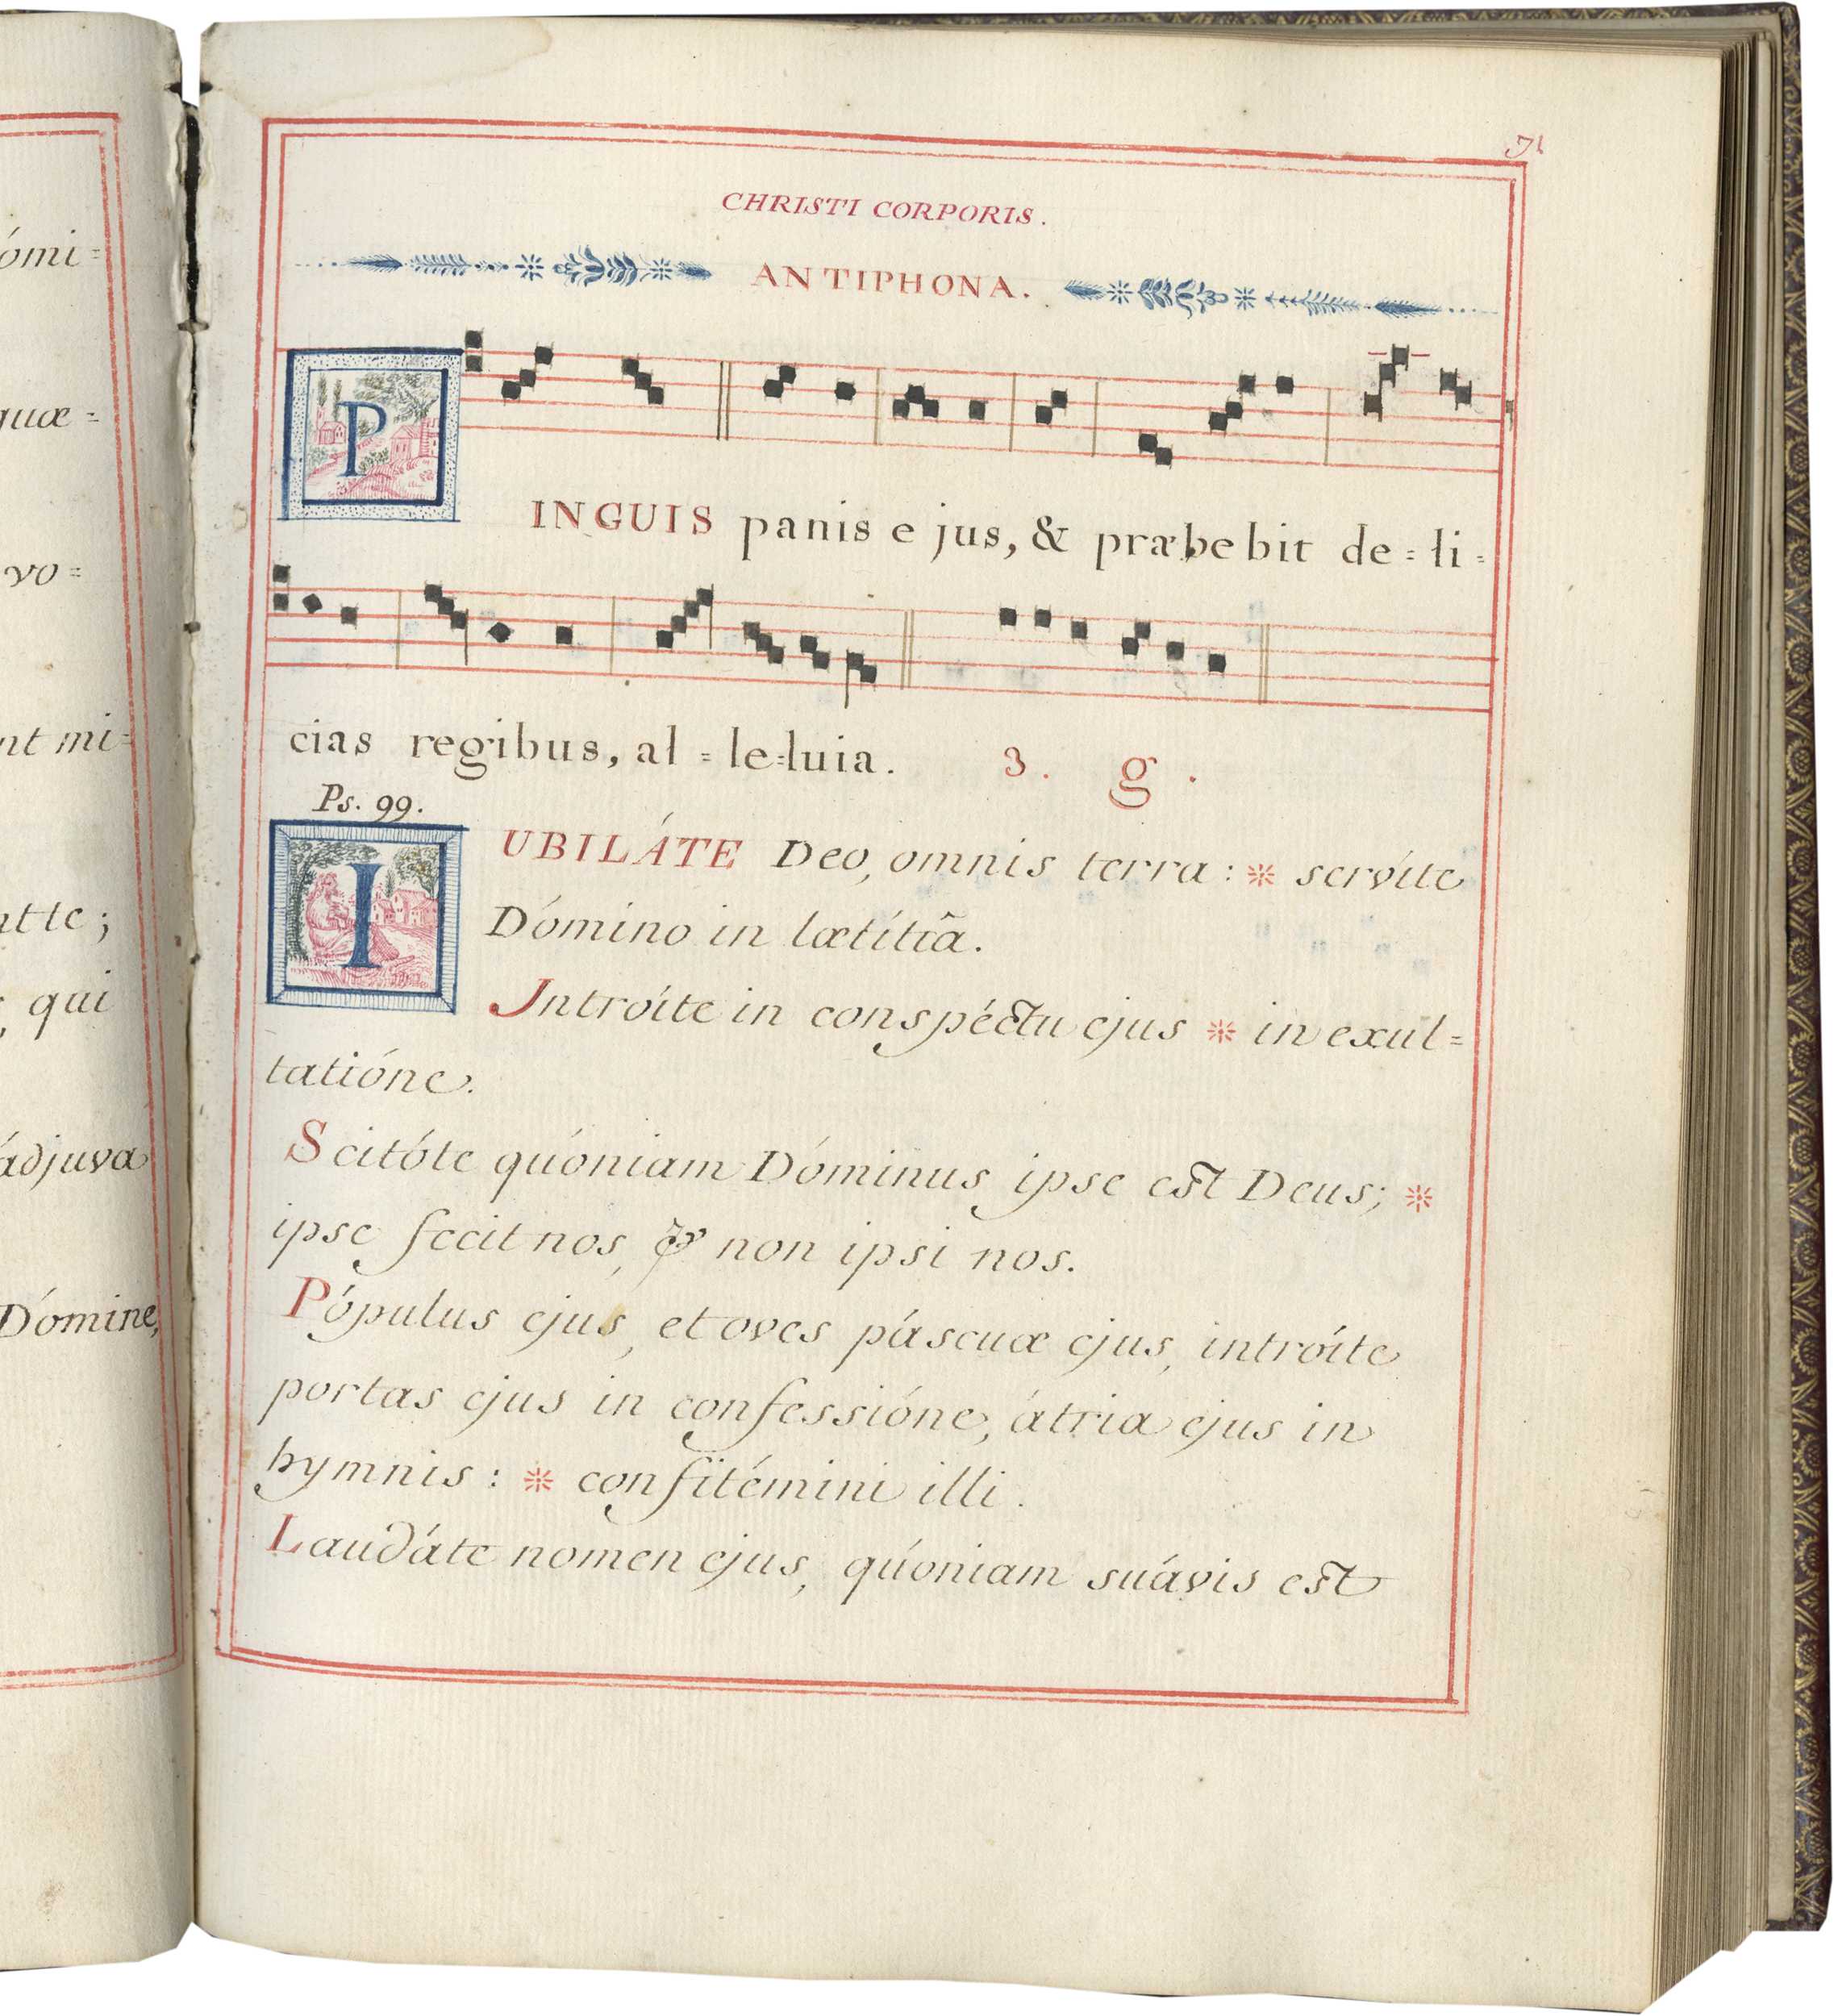 ómi=
quæ=
vo=
nt mi=
nt te;
qui
ádjuva
Dómine,
71
CHRISTI CORPORIS.
ANTIPHONA.
PINGUIS panis e jus, & præbe bit de=li=
cias regibus, al=le=luia. 3. g.
Ps. 99.
IUBILÁTE Deo, omnis terra: * servíte
Dómino in lætítiâ.
Introíte in conspéctu ejus * in exul=
tatióne.
Scitóte quóniam Dóminus ipse est Deus; *
ipse fecit nos, & non ipsi nos.
Pópulus ejus, et oves páscuæ ejus, introíte
portas ejus in confessióne, átria ejus in
hymnis: * confitémini illi.
Laudáte nomen ejus, quóniam suávis est